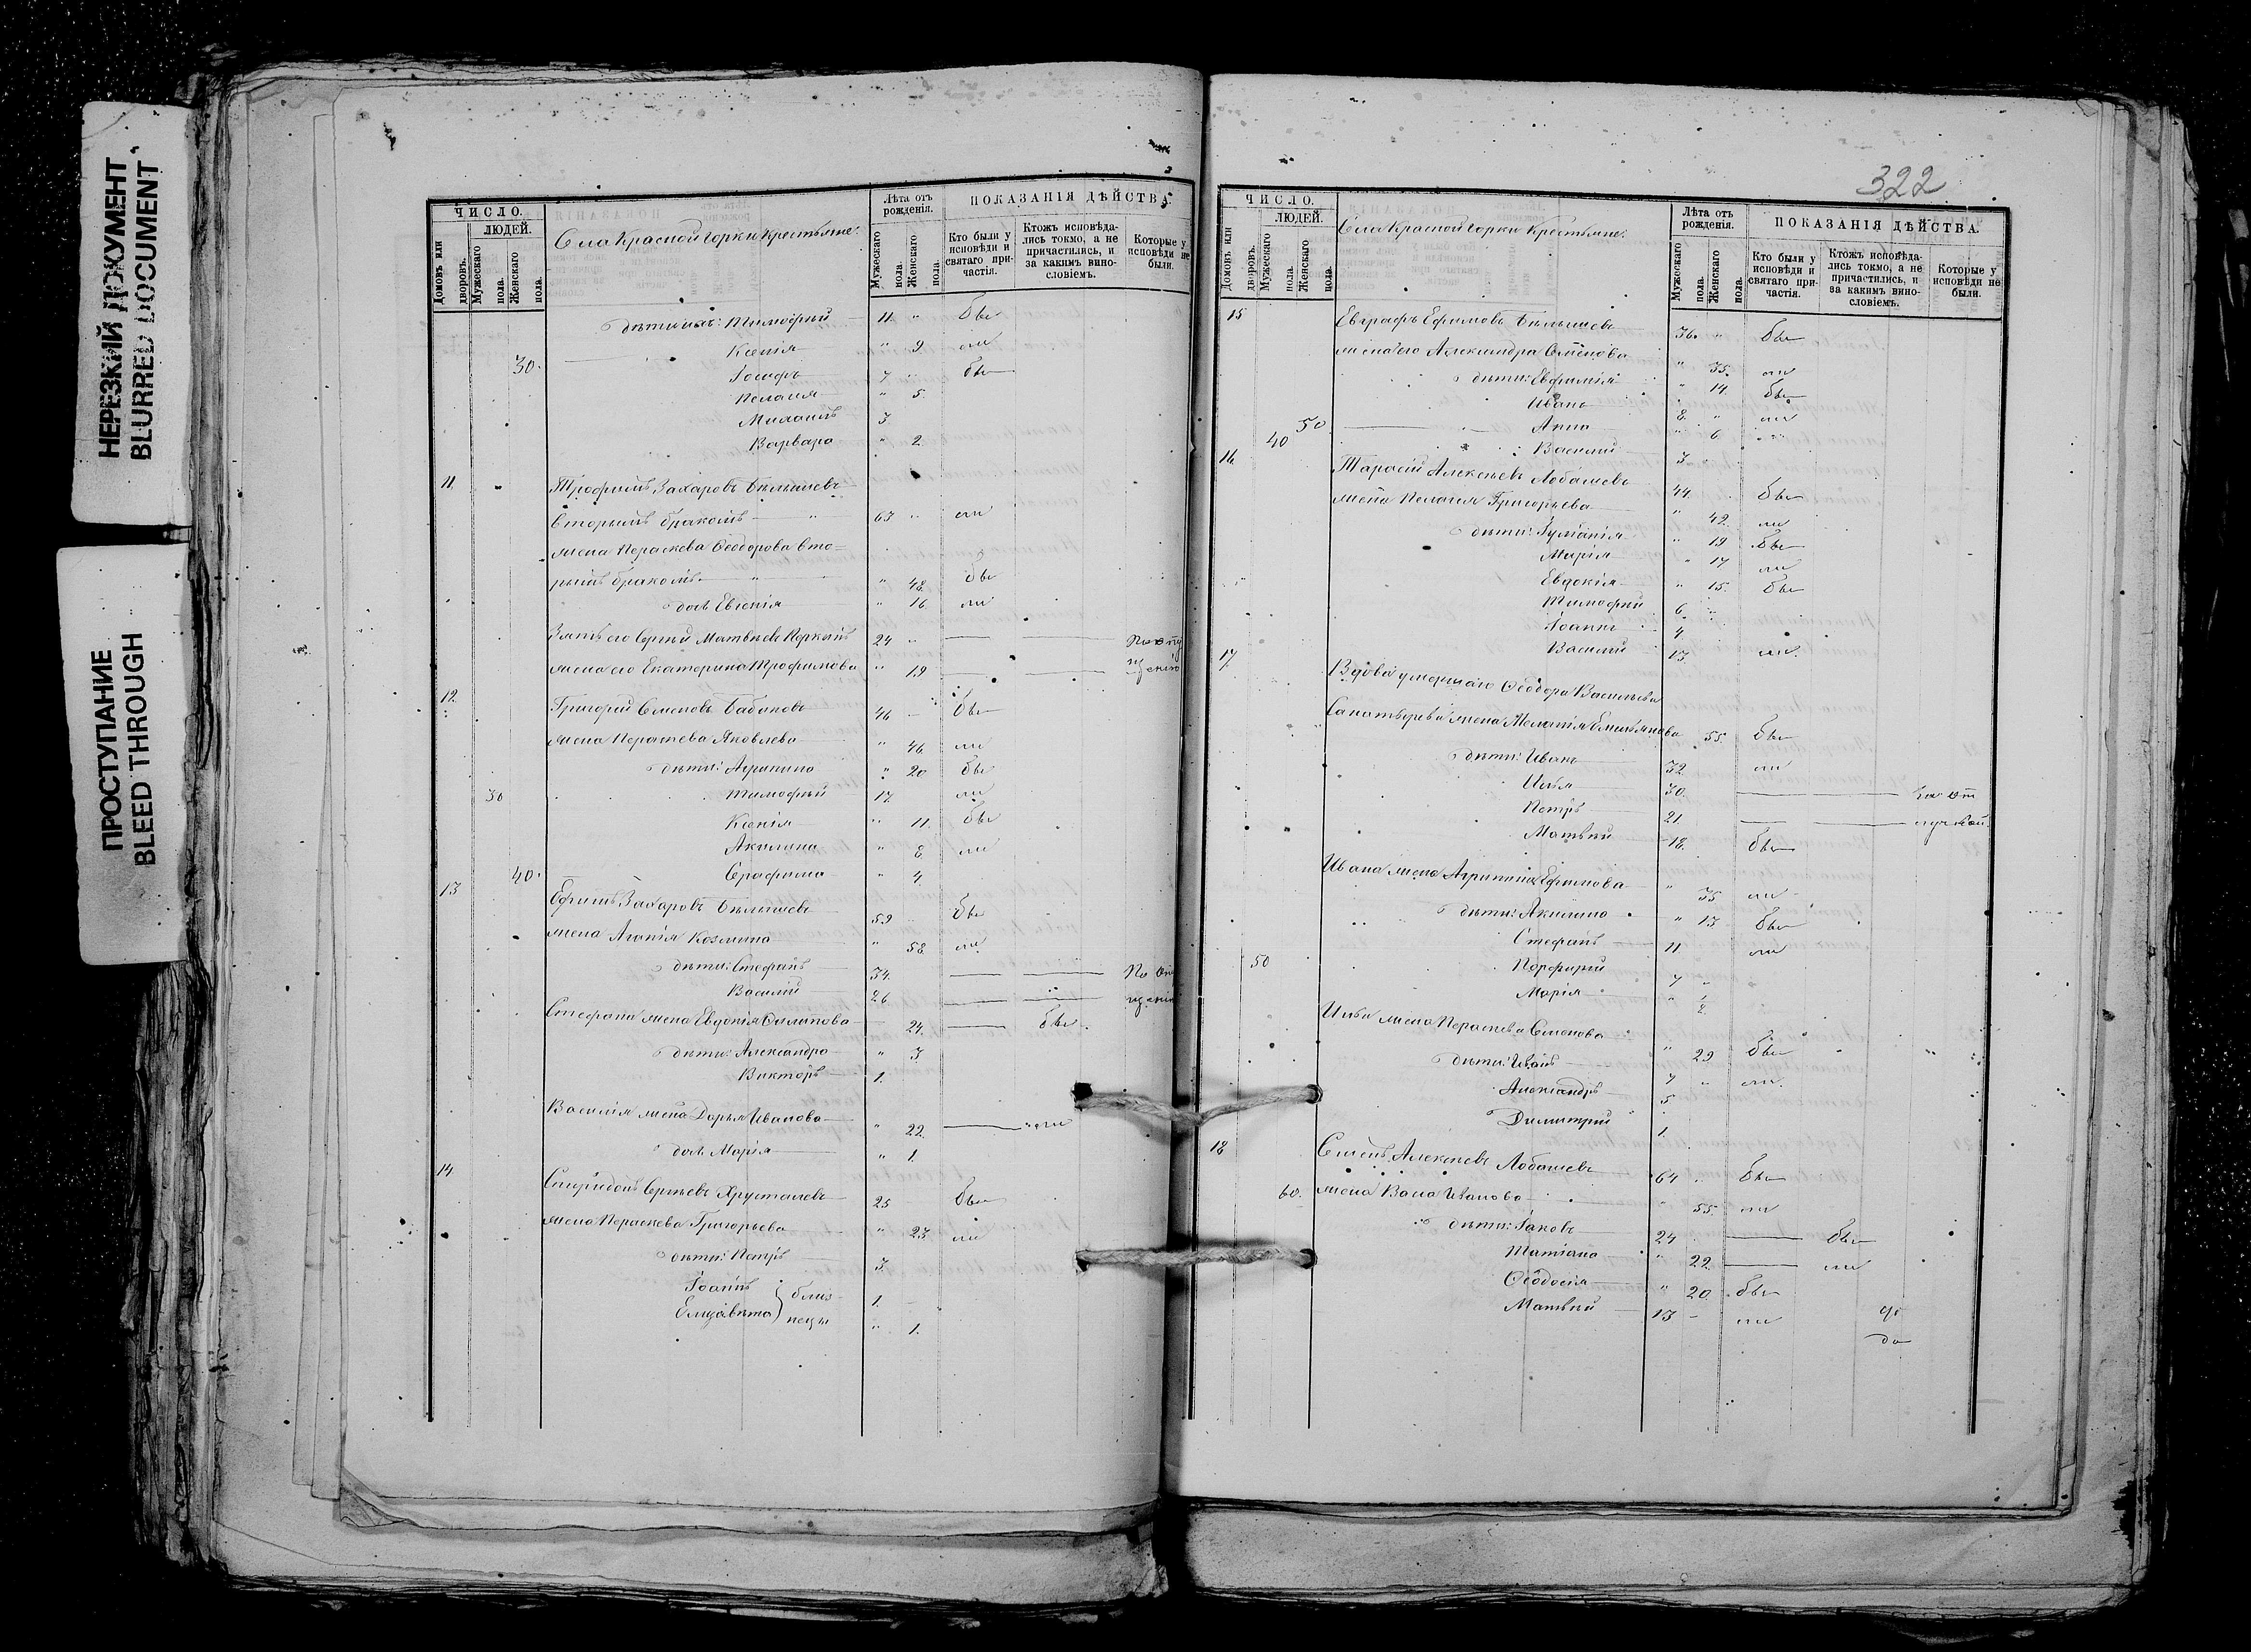 НЕРЕЗКИЙ ДОКУМЕНТ
BLURRED DOCUMENT
ПРОСТУПАНИЕ
BLEED THROUGH
ЧИСЛО.
ЛЮДЕЙ.
Домовъ или дворовъ.
Мужескаго пола.
Женскаго пола.
Села Красной Горки Крестьяне.
Лѣта отъ рожденія.
Мужескаго пола.
Женскаго пола.
ПОКАЗАНІЯ ДѢЙСТВА.
Кто были у исповѣди и святаго причастія.
Ктожъ исповѣдались токмо, а не причастились, и за какимъ винословіемъ.
Которые у исповѣди не были.
дѣти ихъ: Тимофей 11. " бы
Ксенія " 9. ли
30. Іосифъ 7 " бы
Пелагія " 5.
Михаилъ 3
Варвара " 2
11. Трофимъ Захаровъ
вторымъ бракомъ " 63 " ли
жена Параскева Ѳеодорова вто-
рымъ бракомъ " 48. бы
дочь Евгенія " 16. ли
Зять его Сергѣй Матвѣевъ 24 " По опу
жена его Екатерина Трофимова " 19 щенію
12. Григорій Семеновъ Бабановъ 46 бы
жена Параскева Яковлева " 46. ли
дѣти: Агрипина " 20 бы
30 Тимофей 17. ли
Ксенія " 11. бы
Акилина " 8. ли
40. Серафима " 4.
13 Ефимъ Захаровъ 59 бы
жена Агапія Козмина " 58. ли
дѣти: Стефанъ 34. По оп
Василій 26 щенію
Стефана жена Евдокія Филипова 24. бы
дѣти: Александра " 3.
Викторъ 1.
Василія жена Дарья Иванова " 22. ли
дочь Марія " 1.
14 Спиридонъ Сергѣевъ Хрусталевъ 25 бы
жена Параскева Григорьева " 23 ли
дѣти: Петръ 3.
Іоаннъ } близ- 1.
Елизавета } нецы " 1.
322
ЧИСЛО.
ЛЮДЕЙ.
Домовъ или дворовъ.
Мужескаго пола.
Женскаго пола.
Села Красной Горки Крестьяне.
Лѣта отъ рожденія.
Мужескаго пола.
Женскаго пола.
ПОКАЗАНІЯ ДѢЙСТВА.
Кто были у исповѣди и святаго причастія.
Ктожъ исповѣдались токмо, а не причастились, и за какимъ винословіемъ.
Которые у исповѣди не были.
15 Евграфъ Ефимовъ 36. " бы
жена его Александра Семенова " 35. ли
дѣти: Евфимія " 14. бы
Иванъ 8. " ли
50. Анна " 6
40 Василій 3
16. Тарасій Алексѣевъ Лобашевъ 44. бы
жена Пелагія Григорьева " 42. ли
дѣти: Іуліанія " 19 бы
Марія " 17 ли
Евдокія " 15. бы
Тимофей 6. "
Іоаннъ 4
Василій 13 ли.
17. Вдова умершаго Ѳеодора Васильева
жена Меланія Емельянова 55. бы
дѣти: Иванъ 32 ли
Илья 30. За от
Петръ 21. лучкой.
Матвѣй 18. бы
Ивана жена Агрипина Ефимова " 35 ли
дѣти: Акилина " 13 бы
Стефанъ 11. ли
50 Порфирій 7 "
Марія " 1/2
Ильи жена Параскева Семенова " 29 бы
дѣти: Иванъ 7 " ли
Александръ 5
Димитрій 1.
18 Семенъ Алексѣевъ Лобашевъ 64 бы
60. жена Васса Иванова " 55. ли
дѣти: Іаковъ 24 бы
Татіана " 22. ли
Ѳеодосія " 20. бы
Матвѣй 13 ли